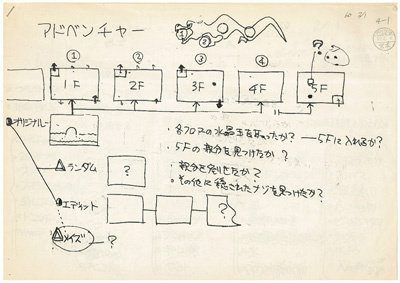 10 21
4-1
アドベンチャー
① ② ③ ④ ⑤
1F 2F 3F 4F 5F
?
オリジナル
・各フロアの水晶玉を取ったか? 5Fに入れるか?
・5Fの親分を見つけたか?
・親分を倒せたか?
・その他に隠されたナゾを見つけたか?
ランダム ?
エディット ?
メイズ ?